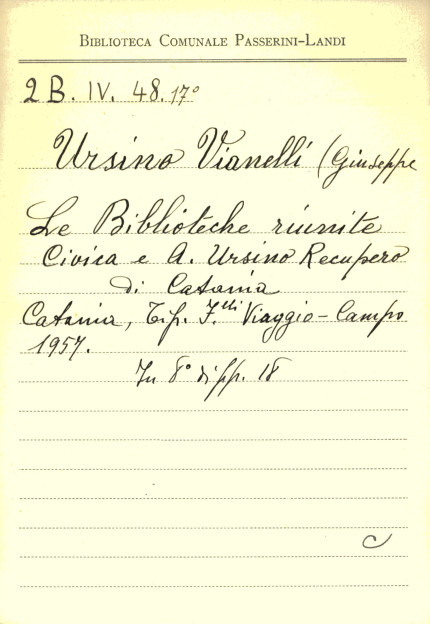 BIBLIOTECA COMUNALE PASSERINI-LANDI
2 B. IV. 48. 17°
Ursino Vianelli (Giuseppe
Le Biblioteche riunite
Civica e A. Ursino Recupero
di Catania
Catania, Tip. F.lli Viaggio-Campo
1957.
In 8° di pp. 18
C